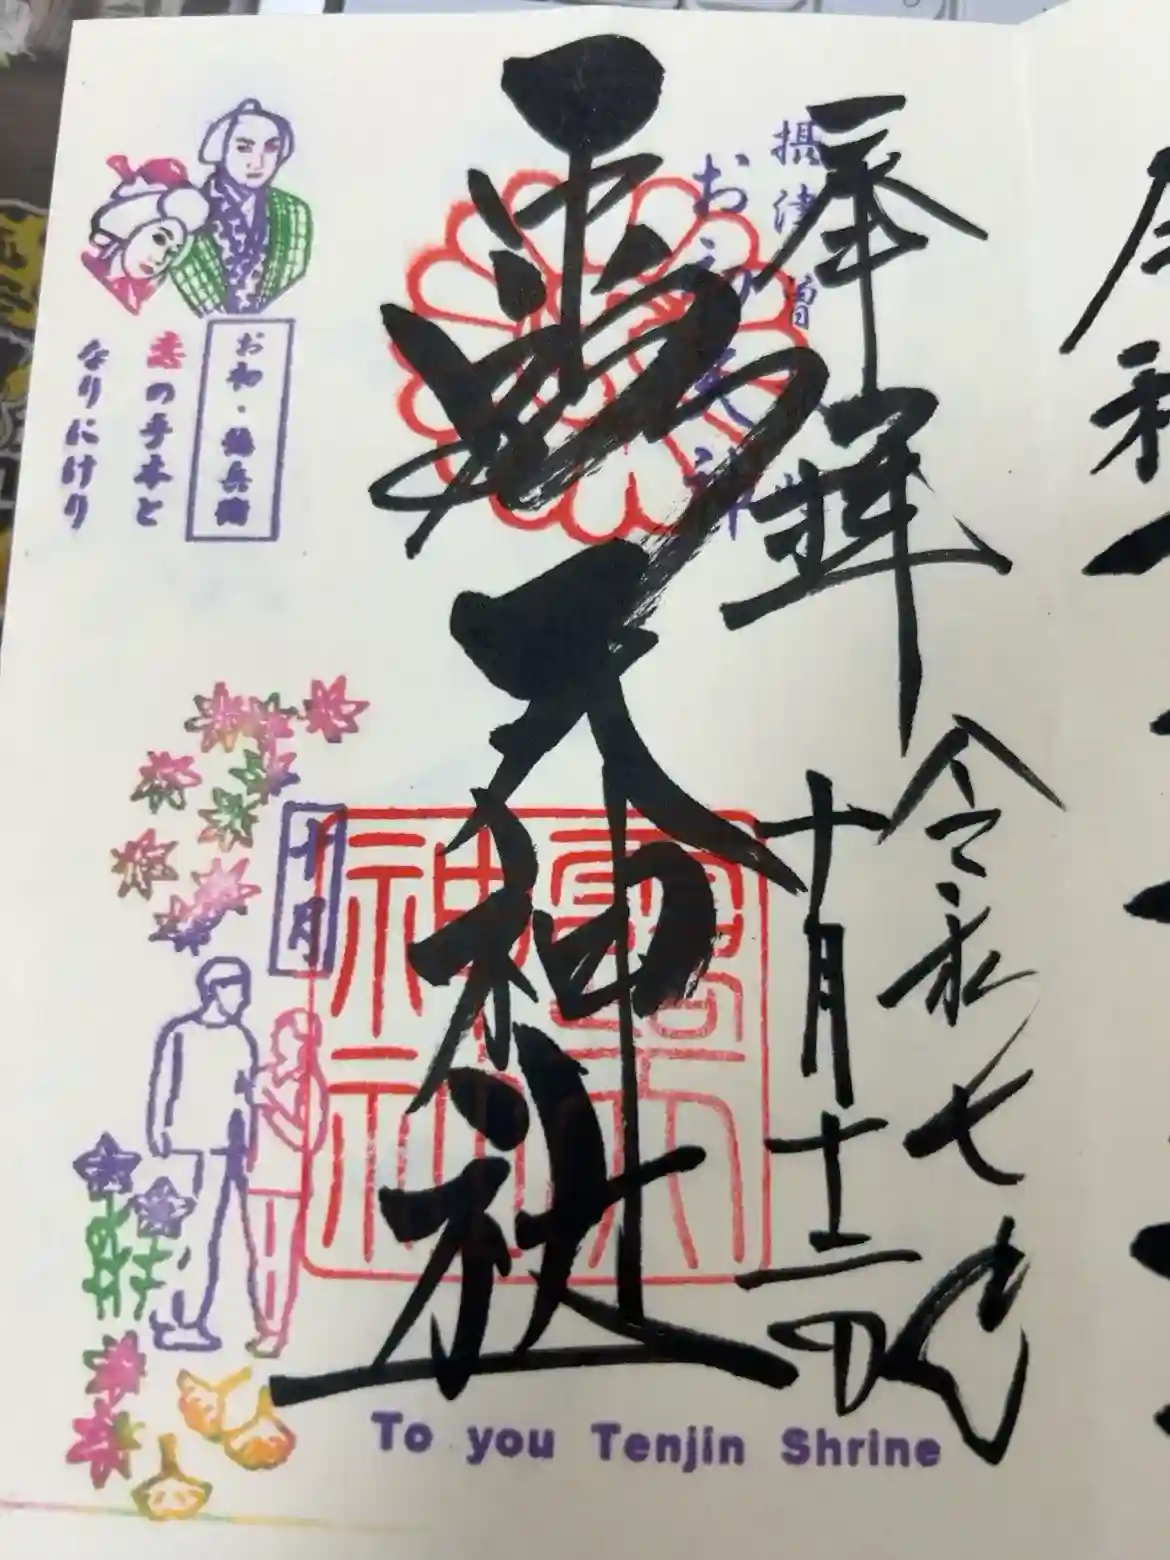 奉拝
令和七年
十月十二日
摂津 曽
お初天神
露天神社
露天
神社
お初・徳兵衛
恋の手本と
なりにけり
十月
To you Tenjin Shrine